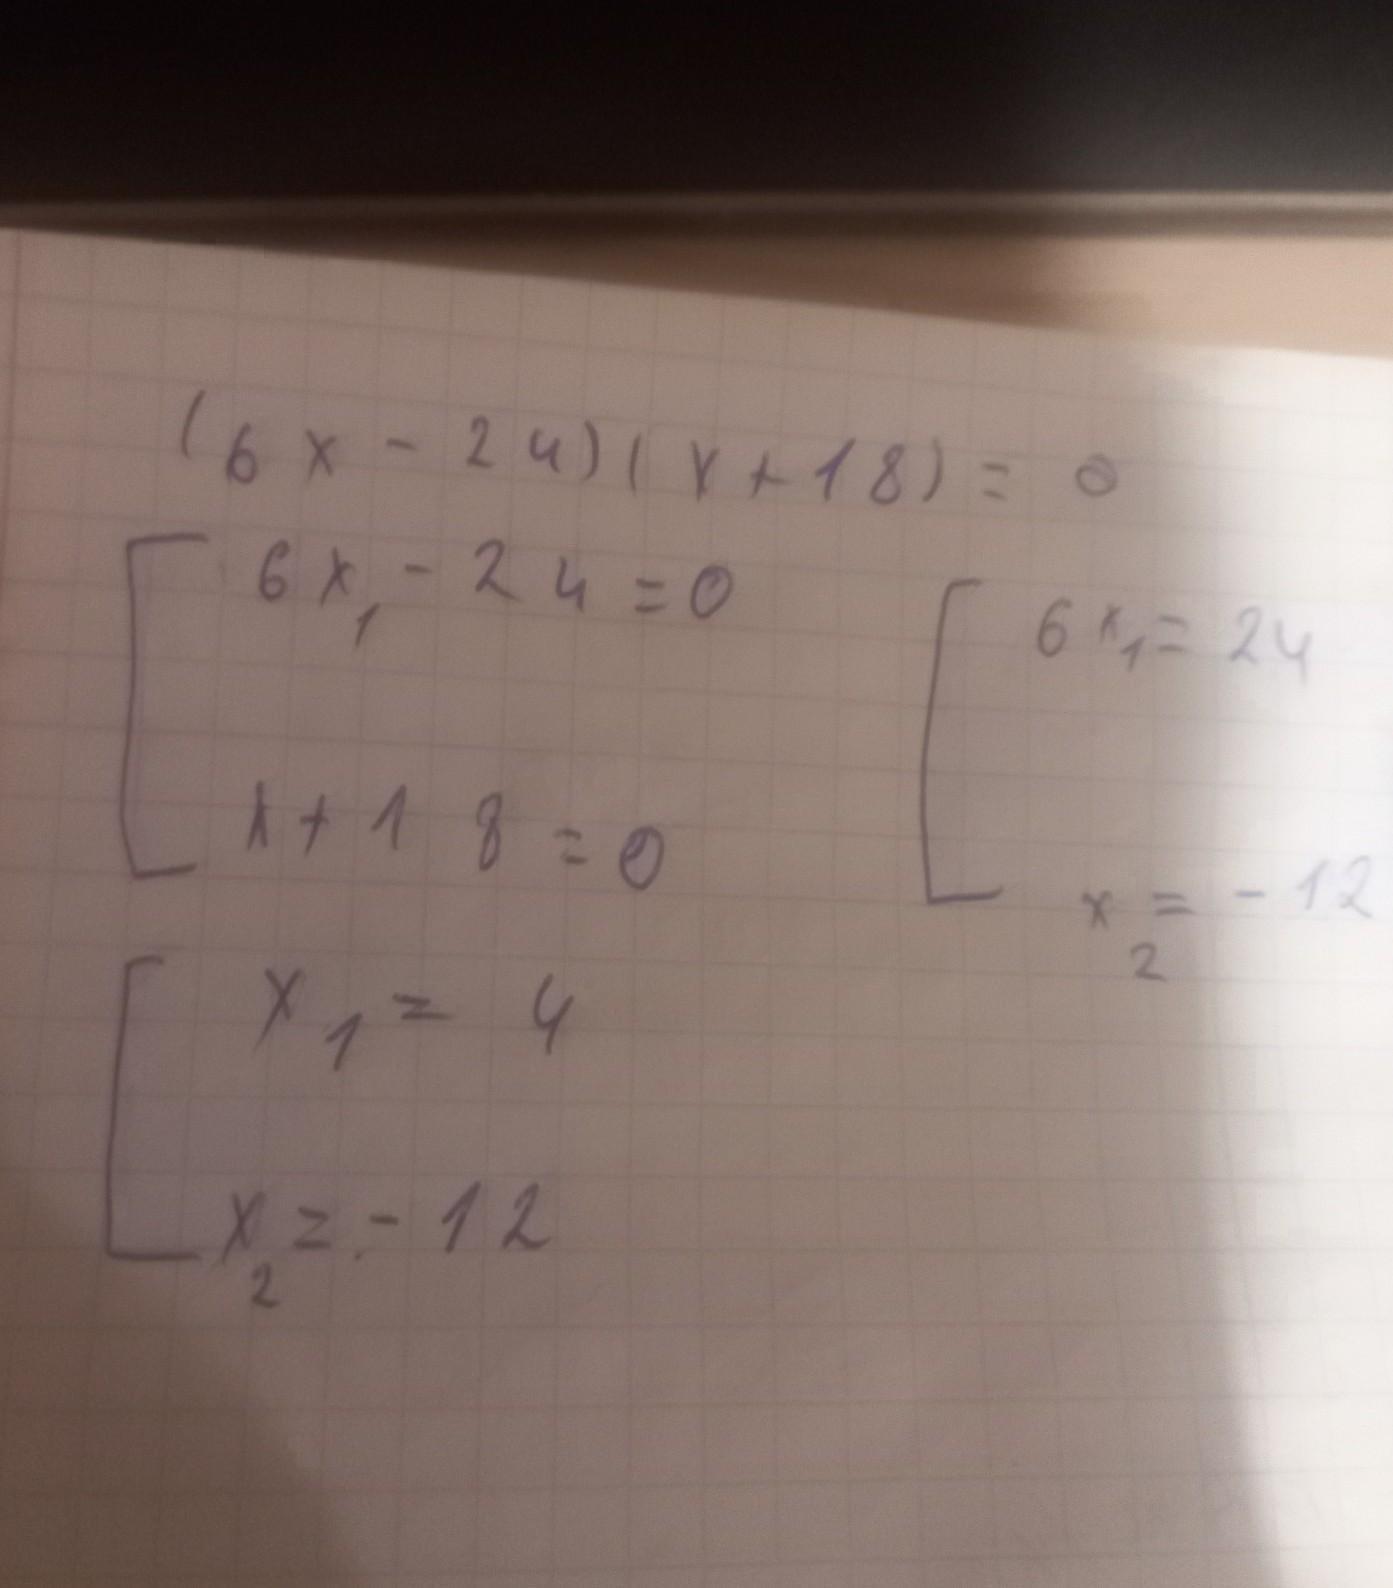 (6x - 24)(x + 18) = 0
[ 6x₁ - 24 = 0
x + 18 = 0
[ 6x₁ = 24
x₂ = - 12
[ x₁ = 4
x₂ = - 12